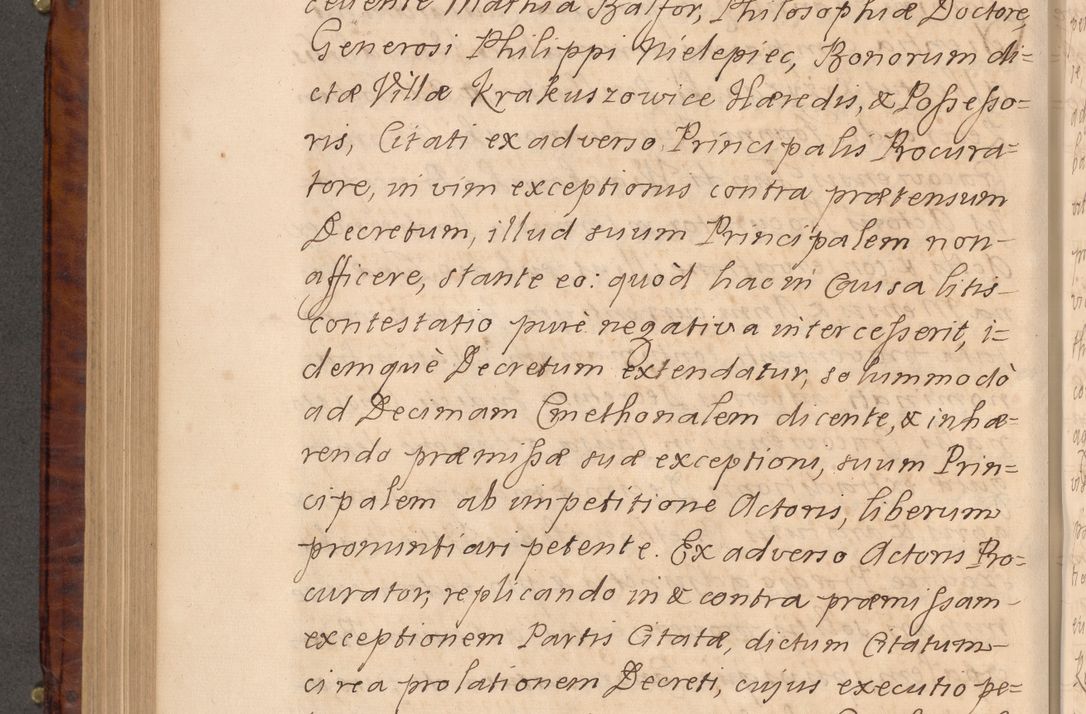 cellente Mathia Balfor, Philosophiæ Doctore,
Generosi Philippi Nielepiec, Bonorum di=
ctæ Villæ Krakuszowice Hæredis, & Possesso=
ris, Citati ex adverso Principalis Procura=
tore, in vim exceptionis contra prætensum
Decretum, illud suum Principalem non
afficere, stante eo: quòd hac in Causa litis
contestatio purè negativa intercesserit, i=
demquè Decretum extendatur, solummodò
ad Decimam Cmethonalem dicente, & inhæ=
rendo præmissæ suæ exceptioni, suum Prin=
cipalem ab impetitione Actoris, liberum
pronuntiari petente. Ex adverso Actoris Pro=
curator, replicando in & contra præmissam
exceptionem Partis Citatæ, dictum Citatum
circa prolationem Decreti, cujus executio pe=